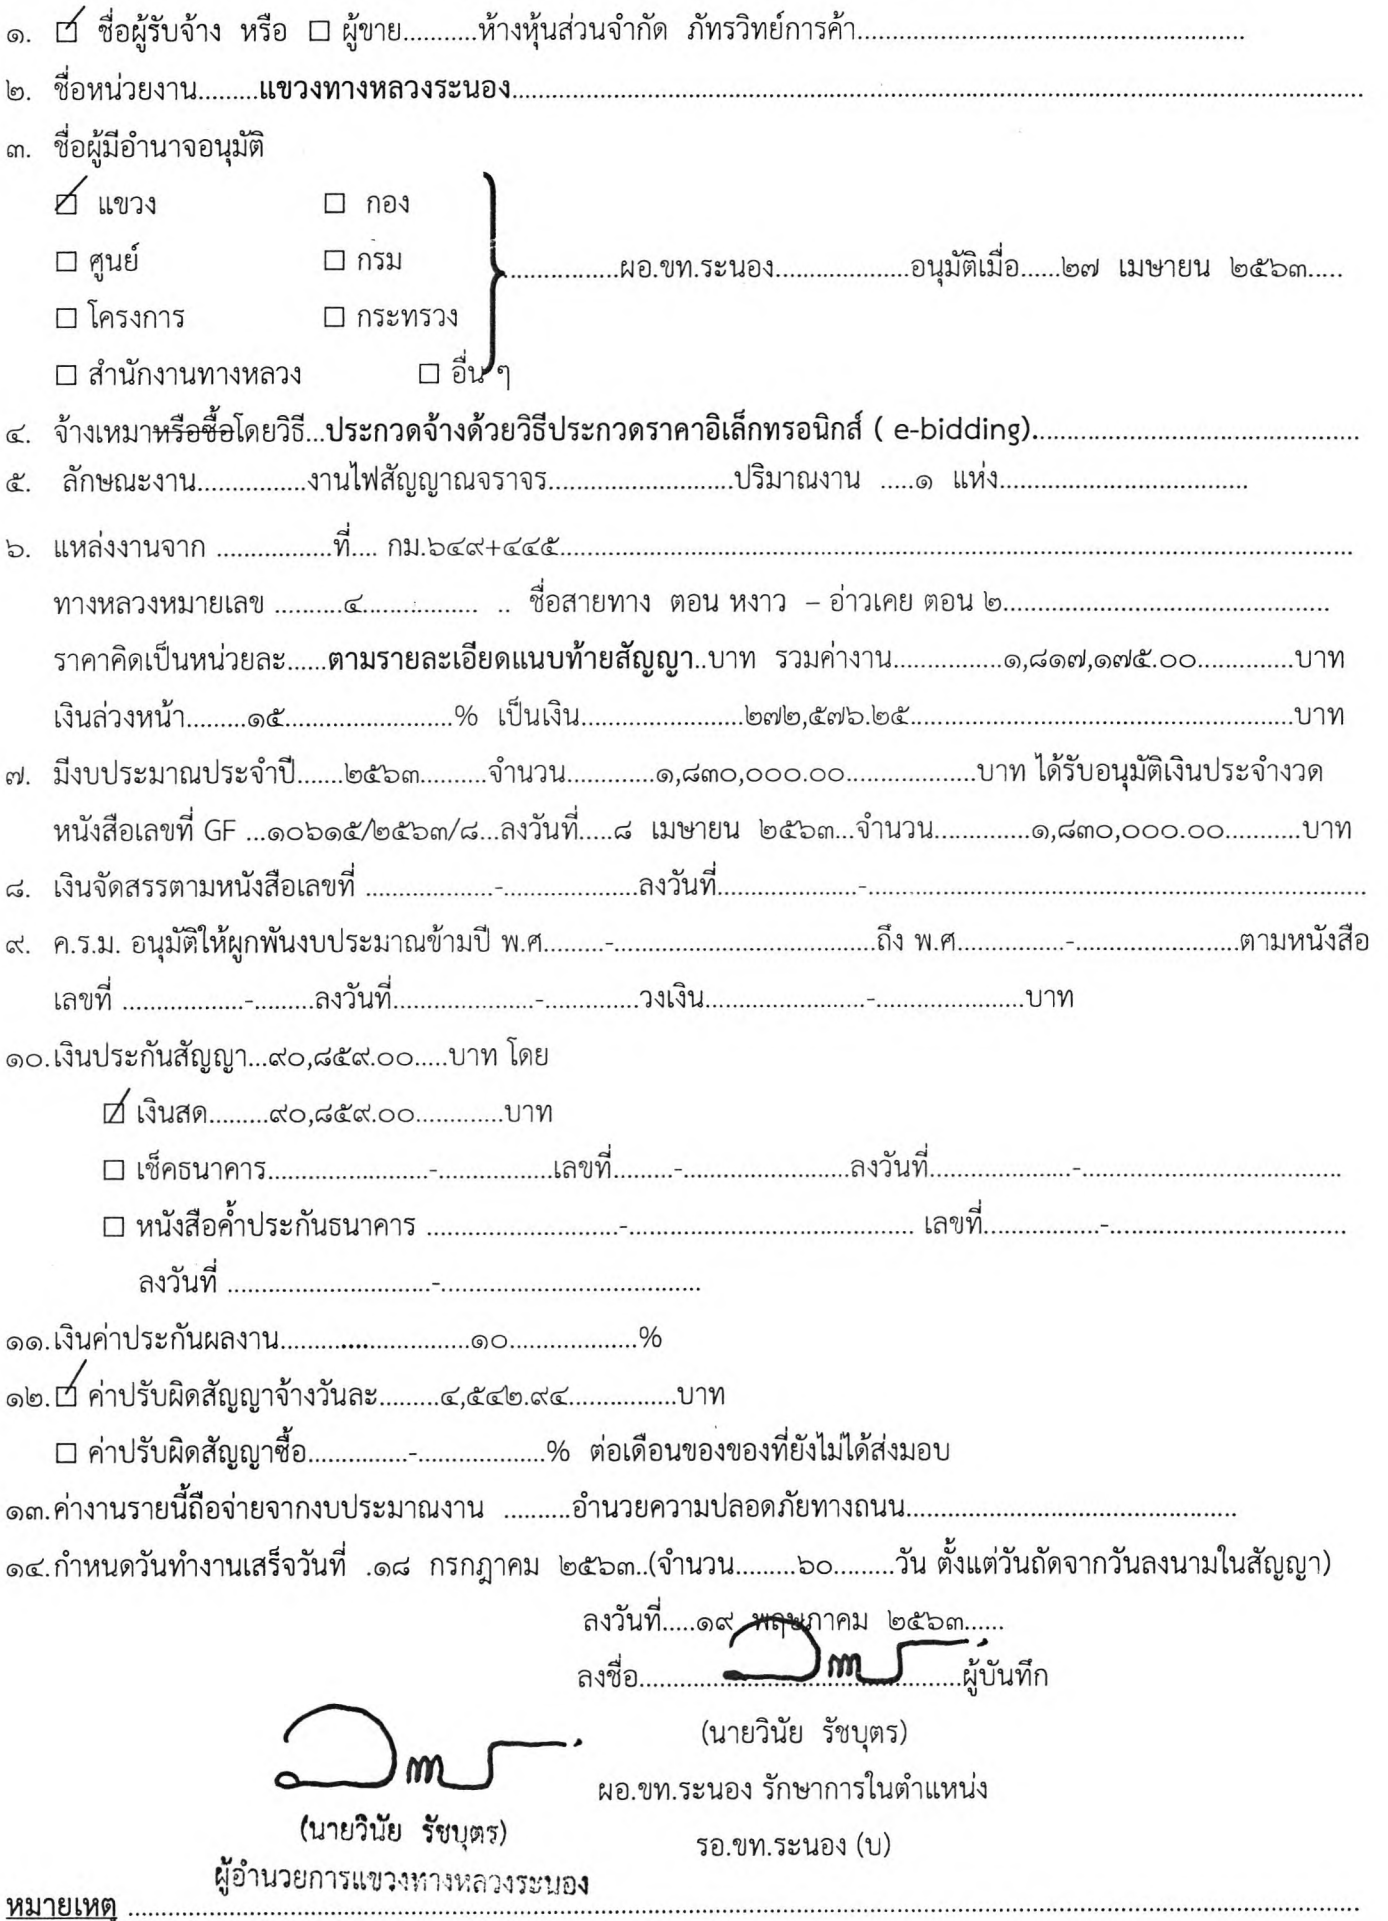 ๑. ☑ ชื่อผู้รับจ้าง หรือ ☐ ผู้ขาย...........ห้างหุ้นส่วนจำกัด ภัทรวิทย์การค้า..........................................................
๒. ชื่อหน่วยงาน.........แขวงทางหลวงระนอง..........................................................
๓. ชื่อผู้มีอำนาจอนุมัติ
☑ แขวง ☐ กอง
☐ ศูนย์ ☐ กรม .................ผอ.ขท.ระนอง....................อนุมัติเมื่อ......๒๗ เมษายน ๒๕๖๓.....
☐ โครงการ ☐ กระทรวง
☐ สำนักงานทางหลวง ☐ อื่น ๆ
๔. จ้างเหมาหรือซื้อโดยวิธี...ประกวดจ้างด้วยวิธีประกวดราคาอิเล็กทรอนิกส์ ( e-bidding)..................................................
๕. ลักษณะงาน................งานไฟสัญญาณจราจร............................ปริมาณงาน .....๑ แห่ง.....................................
๖. แหล่งงานจาก .................ที่.... กม.๖๔๙+๔๔๕..........................................................
ทางหลวงหมายเลข ..........๔................. .. ชื่อสายทาง ตอน หงาว – อ่าวเคย ตอน ๒.................................................
ราคาคิดเป็นหน่วยละ......ตามรายละเอียดแนบท้ายสัญญา..บาท รวมค่างาน................๑,๘๑๗,๑๗๕.๐๐..............บาท
เงินล่วงหน้า.........๑๕.........................% เป็นเงิน........................๒๗๒,๕๗๖.๒๕..........................................................บาท
๗. มีงบประมาณประจำปี.......๒๕๖๓..........จำนวน.............๑,๘๓๐,๐๐๐.๐๐...................บาท ได้รับอนุมัติเงินประจำงวด
หนังสือเลขที่ GF ...๑๐๖๑๕/๒๕๖๓/๘...ลงวันที่.....๘ เมษายน ๒๕๖๓...จำนวน..............๑,๘๓๐,๐๐๐.๐๐...........บาท
๘. เงินจัดสรรตามหนังสือเลขที่ ...................-....................ลงวันที่.....................-..........................................................
๙. ค.ร.ม. อนุมัติให้ผูกพันงบประมาณข้ามปี พ.ศ.........-.......................................ถึง พ.ศ................-.........................ตามหนังสือ
เลขที่ ..................-.........ลงวันที่.....................-..............วงเงิน........................-......................บาท
๑๐.เงินประกันสัญญา...๙๐,๘๕๙.๐๐.....บาท โดย
☑ เงินสด.........๙๐,๘๕๙.๐๐.............บาท
☐ เช็คธนาคาร........................-.................เลขที่.........-.........................ลงวันที่.....................-.......................................
☐ หนังสือค้ำประกันธนาคาร .............................-........................................... เลขที่.................-....................................
ลงวันที่ ..............................-.......................................
๑๑.เงินค่าประกันผลงาน............................๑๐...................%
๑๒.☑ ค่าปรับผิดสัญญาจ้างวันละ.........๔,๕๔๒.๙๔................บาท
☐ ค่าปรับผิดสัญญาซื้อ...............-...................% ต่อเดือนของของที่ยังไม่ได้ส่งมอบ
๑๓.ค่างานรายนี้ถือจ่ายจากงบประมาณงาน ..........อำนวยความปลอดภัยทางถนน..................................................
๑๔.กำหนดวันทำงานเสร็จวันที่ .๑๘ กรกฎาคม ๒๕๖๓..(จำนวน.........๖๐.........วัน ตั้งแต่วันถัดจากวันลงนามในสัญญา)
ลงวันที่.....๑๙ พฤษภาคม ๒๕๖๓......
ลงชื่อ................................................ผู้บันทึก
(นายวินัย รัชบุตร)
ผอ.ขท.ระนอง รักษาการในตำแหน่ง
รอ.ขท.ระนอง (บ)
(นายวินัย รัชบุตร)
ผู้อำนวยการแขวงทางหลวงระนอง
หมายเหตุ ..........................................................